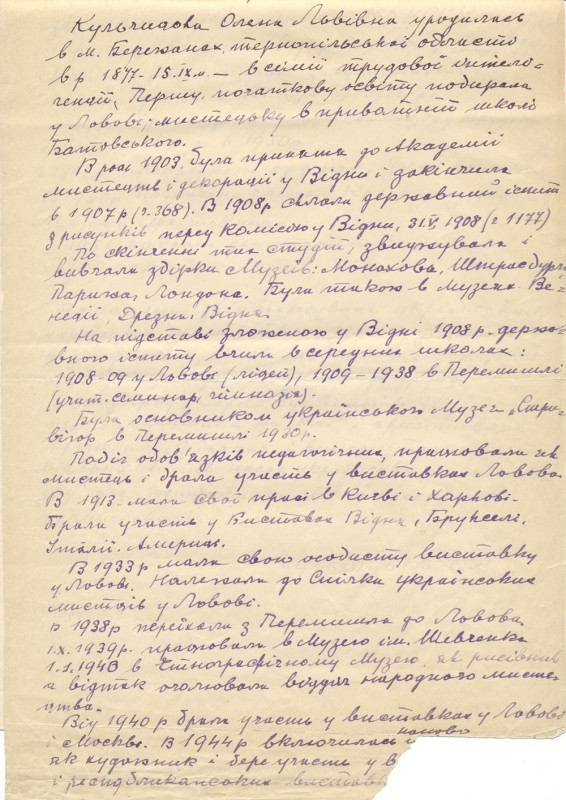 Кульчицька Олена Львівна уродилась
в м. Бережанах, тернопільської области
в р 1877 - 15.IX.н. — в сімії трудової интелі-
генції, Першу початкову освіту побирала
у Львові, - мистецьку в приватній школі
Батовського.
В році 1903. була принята до Академії
мистецтв і декорації у Відни і закінчила
в 1907 р (г. 368). В 1908 р склала державний іспит
з рисунків перед комісією у Відни, 31.V. 1908 (г 1177)
По скінченні тих студій, звиджувала і
вивчала збірки музеїв: Монахова, Штрасбурга
Парижа, Лондона. Була також в музеях Ве-
неції Дрезни, Відня.
На підставі зложеного у Відні 1908 р. держа-
вного іспиту вчила в середних школах:
1908-09 у Львові (ліцей), 1909 - 1938 в Перемишлі
(учит. семинар, гімназія).
Була основником українського Музея „Стри-
вігор в Перемишлі 1930р.
Побіч обов'язків педагогічних, працювала як
мистець і брала участь у виставках Львова
В 1913 - мала свої праці в Київі і Харкові.
Брала участь у Виставах Відня, Брукселі,
Італії. Америці.
В 1933 р мала свою особисту виставку
у Львові. Належала до Спілки українських
мистців у Львові.
в 1938 р переїхала з Перемишля до Львова
I.X. 1939 р. працювала в Музею ім. Шевченка
1.1.1940 в Етнографічному Музею, як рисівник
а відтак очолювала відділ народного мисте-
цтва.
Від 1940 р брала участь у виставках у Львові
і Москві. В 1944 р включилась наново
як художник і бере участь у в
і республиканських виставк